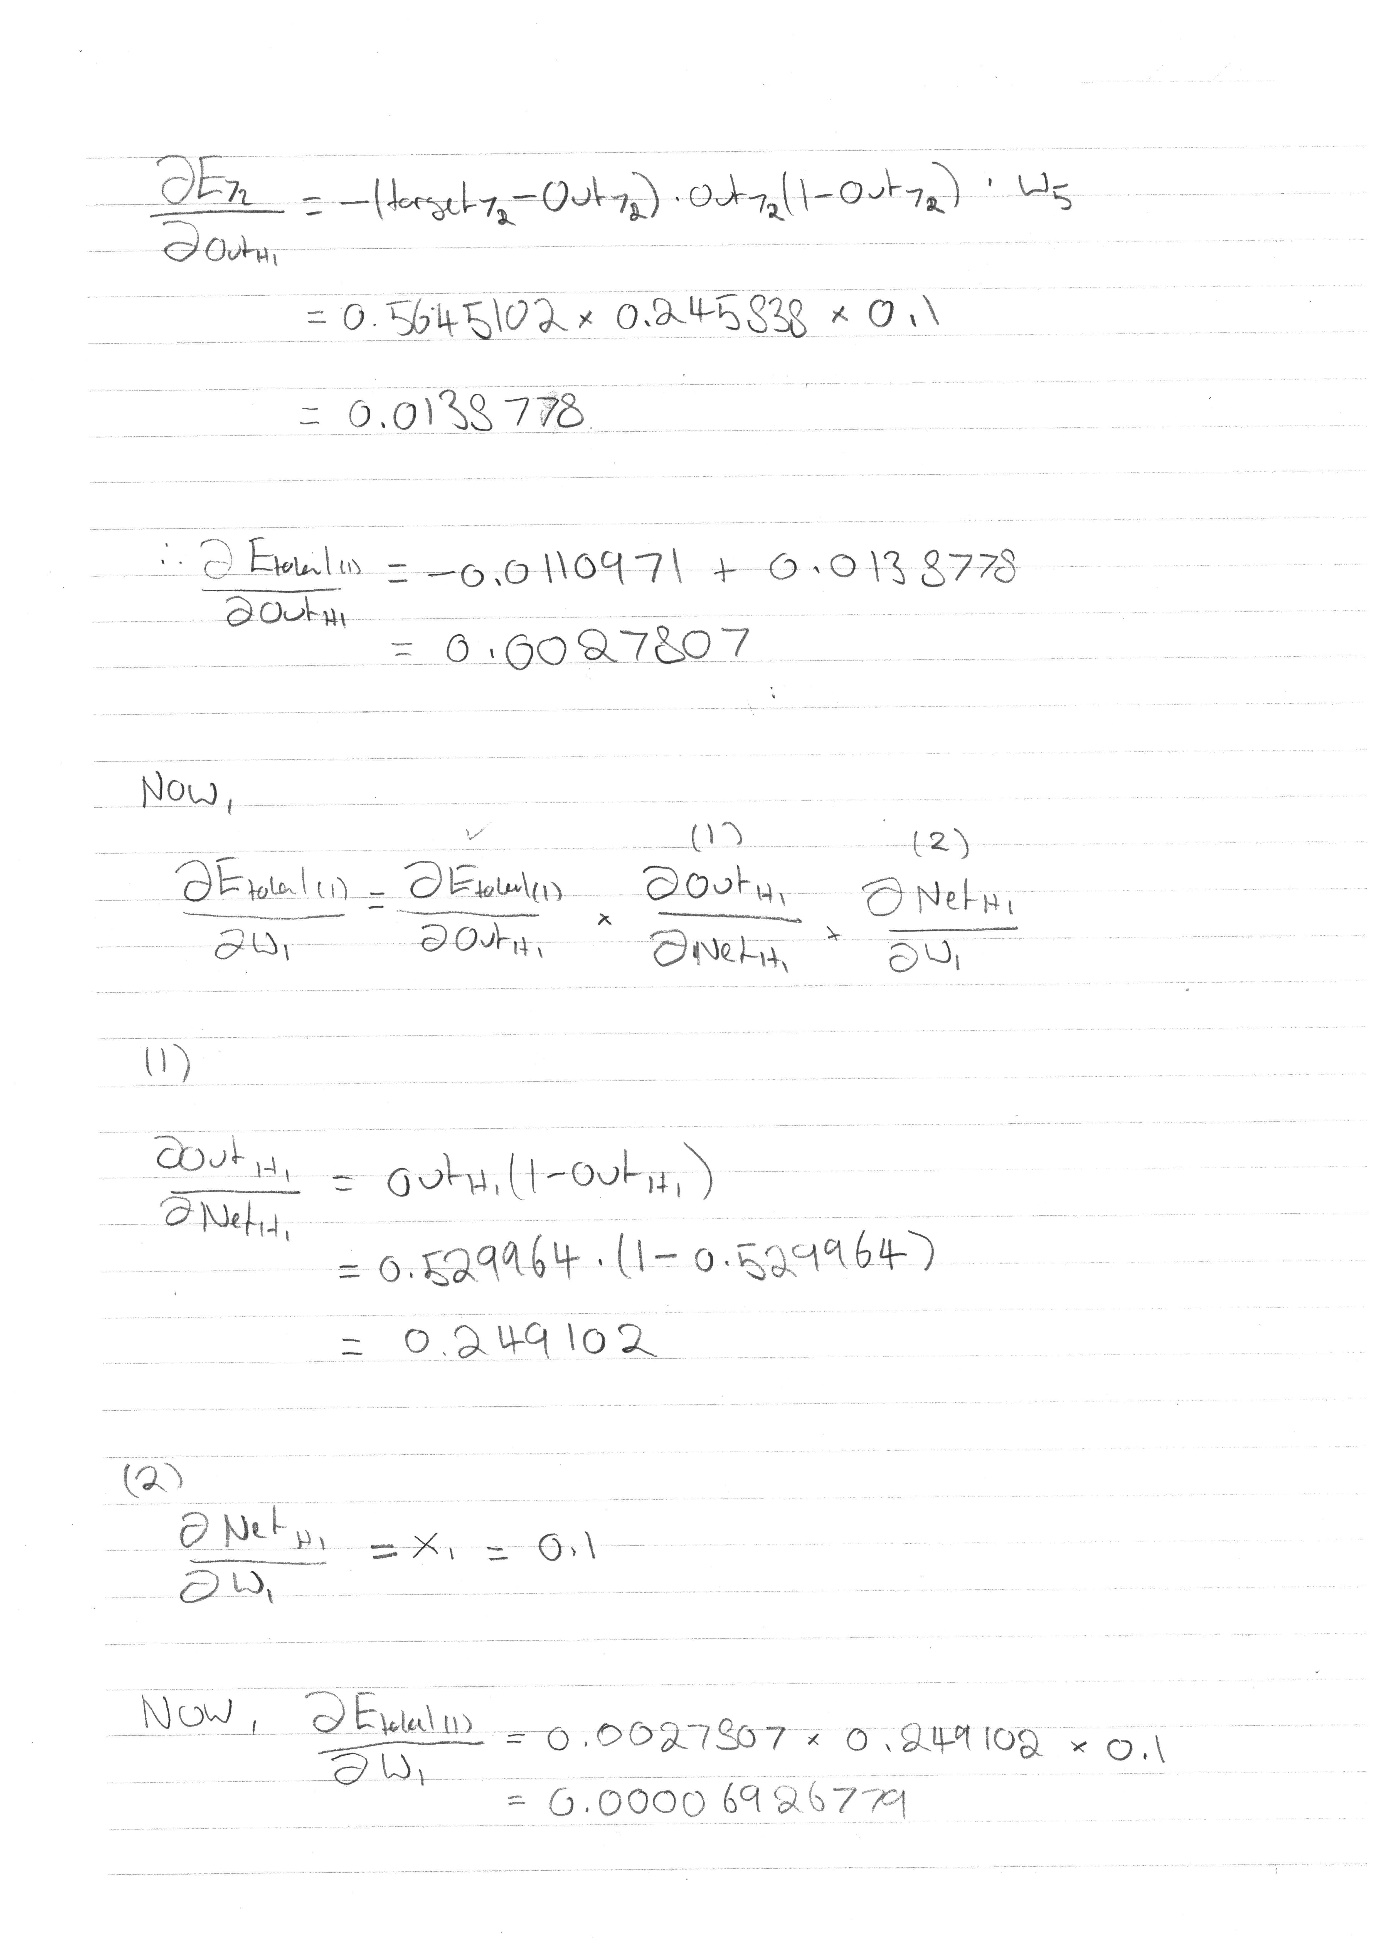 ∂E₇₂/∂Out_H₁ = −(target₇₂ − Out₇₂) · Out₇₂(1 − Out₇₂) · W₅
= 0.5645102 × 0.245838 × 0.1
= 0.0138778
∴ ∂Etotal(1)/∂Out_H1 = −0.0110971 + 0.0138778
= 0.0027807
Now,
✓ (1) (2)
∂Etotal(1)/∂W₁ = ∂Etotal(1)/∂Out_H₁ × ∂Out_H₁/∂Net_H₁ × ∂Net_H₁/∂W₁
(1)
∂Out_H₁/∂Net_H₁ = Out_H₁(1 − Out_H₁)
= 0.529964 · (1 − 0.529964)
= 0.249102
(2)
∂Net_H₁/∂W₁ = X₁ = 0.1
Now, ∂Etotal(1)/∂W₁ = 0.0027807 × 0.249102 × 0.1
= 0.00006926779